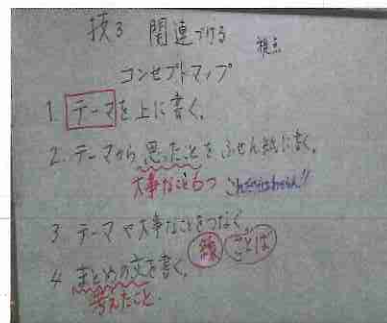 技3 関連づける
視点
コンセプトマップ
1. テーマを上に書く。
2. テーマから思ったことをふせん紙に書く。
大事なこと6つ
3 テーマや大事なことをつなぐ。
線 ことば
4 まとめの文を書く。
考えたこと。